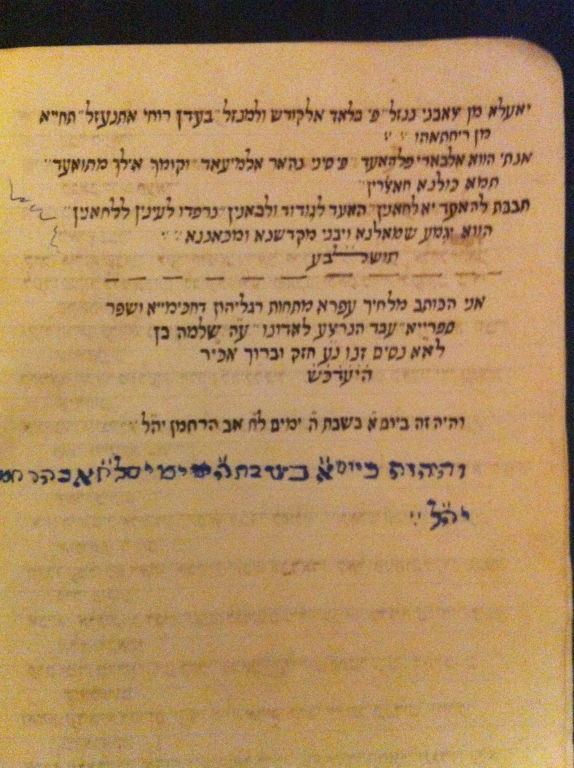 יאעלא מן צאבני בנזל פי בלאד אלקודש ולמנזל בעדן רוחי אתנעזל תחייא
מן ריחתאהו
אנתי הווא אלבארי פלהאעד פי סיני נהאר אלמיעאד וקומך אילך מתואעד
תמא כולנא חאצרין
חבבת להאעד יא לחאנין האעד לגודוד ולבאנין נרפדו לעינין ללחאנין
הווא יגמע שמאלנא ויבני מקדשנא ומכאננא
תושלבע
אני הכותב מלחיך עפרא מתחות רגליהון דחכימייא ושפר
ספרייא עבד הנרצע לאדונו ע״ה שלמה בן
לא״א נסים זנו נ״ע חזק וברוך אכי״ר
היעדכ״ש
והיה זה ביום א׳ בשבת ה׳ ימים לח׳ אב הרחמן יה״ל
והיה זה ביום א׳ בשבת ה׳ ימים לח׳ אב הרחמן
יה״ל